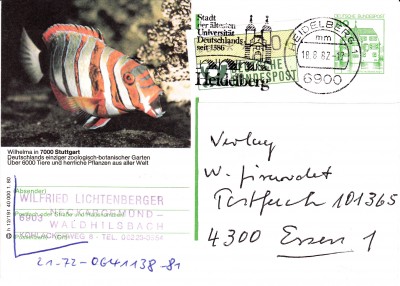 Stadt
der ältesten
Universität
Deutschlands
seit 1386
Heidelberg
DEUTSCHE
BUNDESPOST
HEIDELBERG 1
mm
18.8.82
6900
Wilhelma in 7000 Stuttgart
Deutschlands einziger zoologisch-botanischer Garten
Über 8000 Tiere und herrliche Pflanzen aus aller Welt
(Absender)
WILFRIED LICHTENBERGER
6903 NECKARGEMÜND-
WALDHILSBACH
Verlag
W.
Postfach 101365
4300 Essen 1
21-72-0641138-81